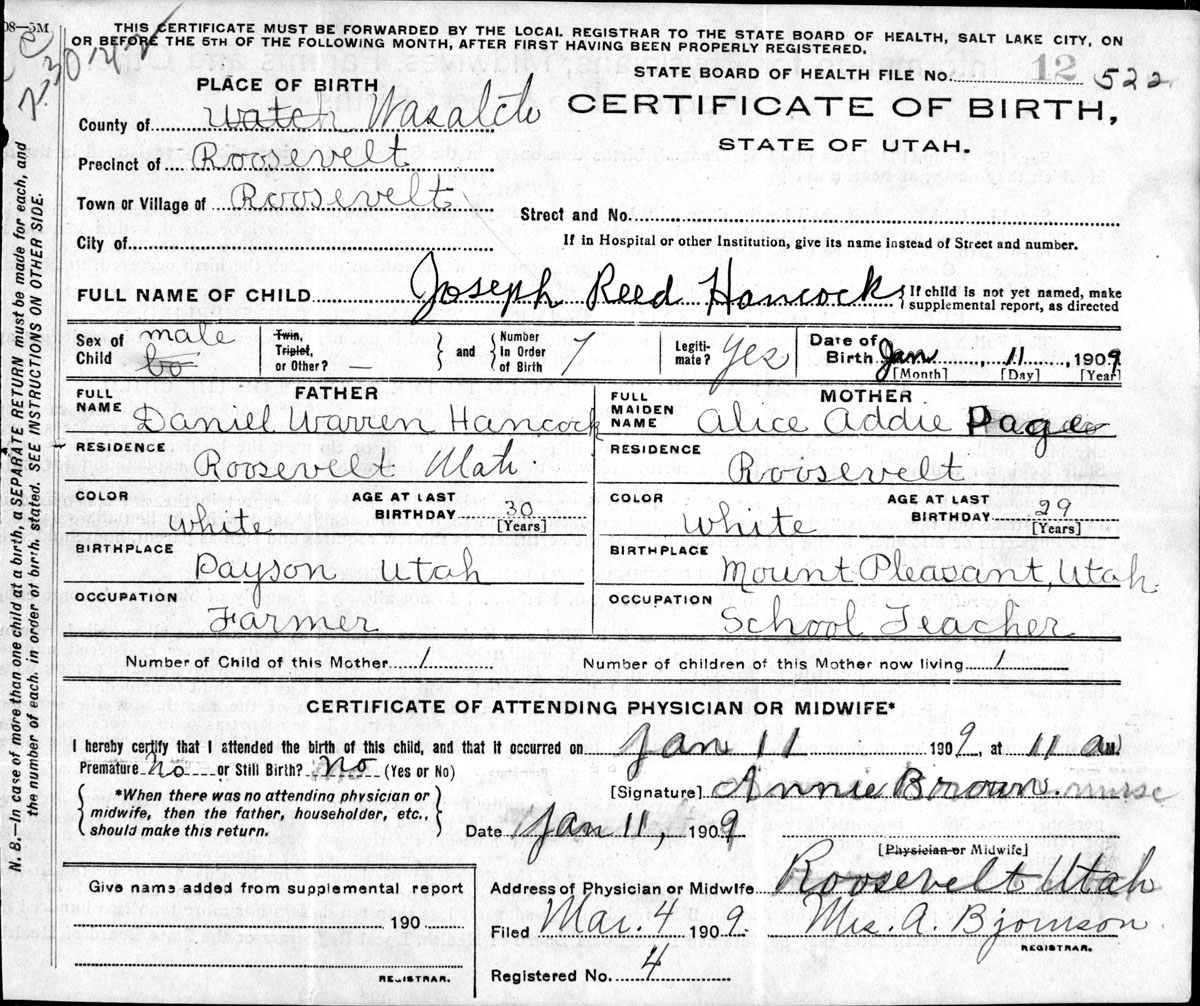 08—5M
THIS CERTIFICATE MUST BE FORWARDED BY THE LOCAL REGISTRAR TO THE STATE BOARD OF HEALTH, SALT LAKE CITY, ON
OR BEFORE THE 5TH OF THE FOLLOWING MONTH, AFTER FIRST HAVING BEEN PROPERLY REGISTERED.
STATE BOARD OF HEALTH FILE No. 12 522
PLACE OF BIRTH
CERTIFICATE OF BIRTH,
STATE OF UTAH.
County of Watch Wasatch
Precinct of Roosevelt
Town or Village of Roosevelt
Street and No.
City of
If in Hospital or other Institution, give its name instead of Street and number.
FULL NAME OF CHILD Joseph Reed Hancock { If child is not yet named, make
supplemental report, as directed
Sex of Child male bo
Twin, Triplet, or Other? —
and Number In Order of Birth 1
Legiti-mate? Yes
Date of Birth Jan 11, 1909
[Month] [Day] [Year]
FATHER
FULL NAME Daniel Warren Hancock
RESIDENCE Roosevelt Utah
COLOR White AGE AT LAST BIRTHDAY 30 [Years]
BIRTHPLACE Payson Utah
OCCUPATION Farmer
MOTHER
FULL MAIDEN NAME Alice Addie Page
RESIDENCE Roosevelt
COLOR White AGE AT LAST BIRTHDAY 29 [Years]
BIRTHPLACE Mount Pleasant, Utah.
OCCUPATION School Teacher
Number of Child of this Mother 1 Number of children of this Mother now living 1
CERTIFICATE OF ATTENDING PHYSICIAN OR MIDWIFE*
I hereby certify that I attended the birth of this child, and that it occurred on Jan 11 1909, at 11 a M)
Premature? No or Still Birth? No (Yes or No)
[Signature] Annie Brown. nurse
*When there was no attending physician or
midwife, then the father, householder, etc.,
should make this return.
Date Jan 11, 1909
[Physician or Midwife]
Give name added from supplemental report
190
REGISTRAR.
Address of Physician or Midwife Roosevelt Utah
Filed Mar. 4 1909. Mrs. A. Bjornson.
REGISTRAR.
Registered No. 4
N. B.—In case of more than one child at a birth, a SEPARATE RETURN must be made for each, and
the number of each, in order of birth, stated. SEE INSTRUCTIONS ON OTHER SIDE.